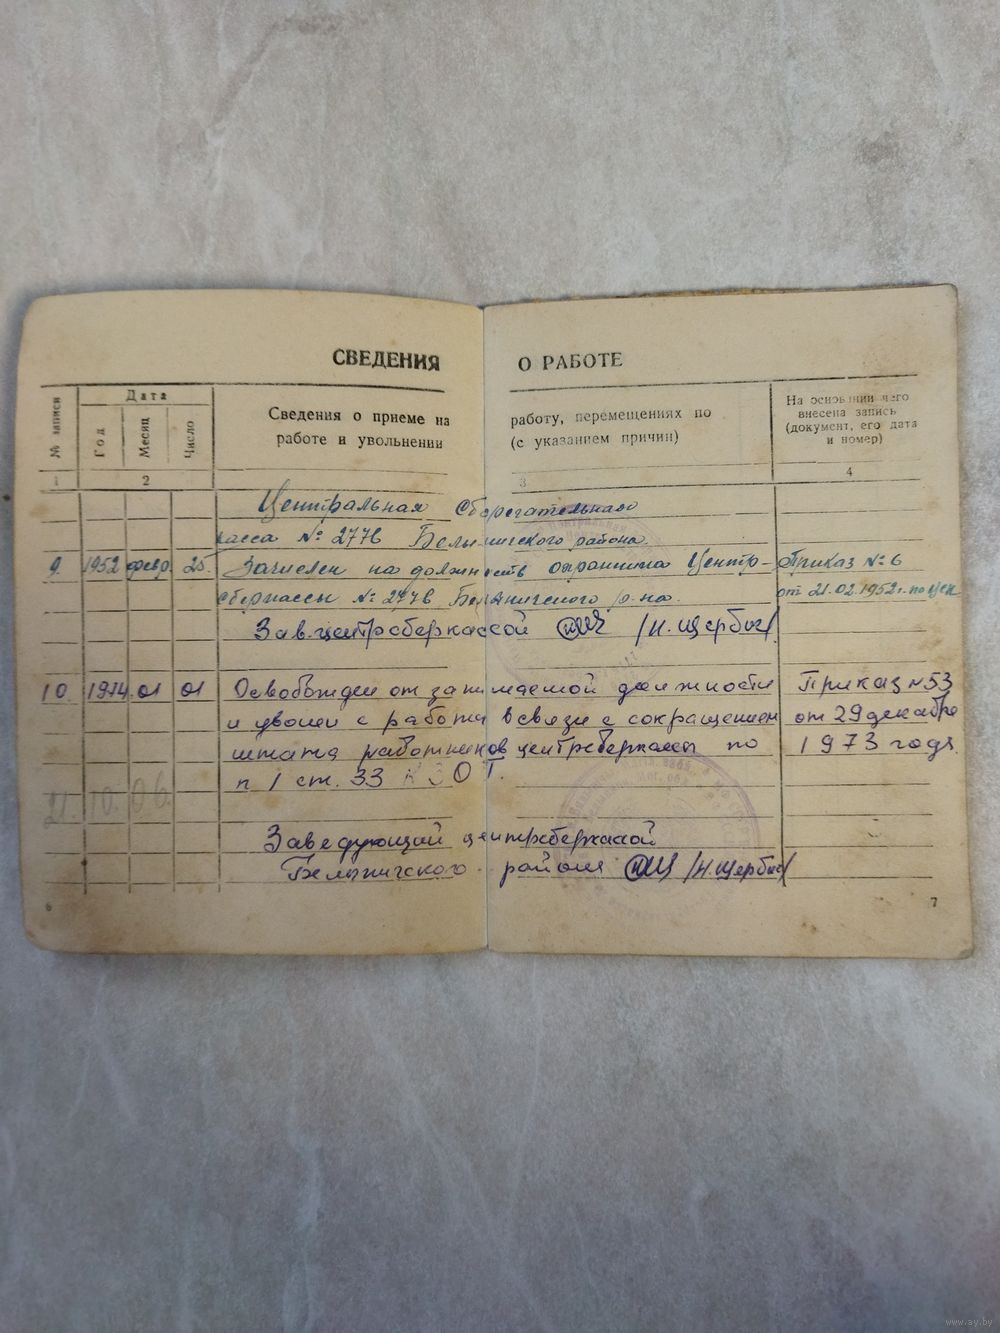 СВЕДЕНИЯ О РАБОТЕ
№ записи
Дата
Год
Месяц
Число
Сведения о приеме на работу, перемещениях по
работе и увольнении (с указанием причин)
На основании чего
внесена запись
(документ, его дата
и номер)
1 2 3 4
Центральная Сберегательная
касса № 2776 Белыничского района
9 1952 февр. 25. Зачислен на должность охранника Центр- Приказ № 6
сберкассы № 2776 Белыничского р-на. от 21.02.1952г. по
Зав. центрсберкассой /Н. Щербич/
10 1974 01 01 Освобожден от занимаемой должности Приказ № 53
и уволен с работы в связи с сокращением от 29 декабря
штата работников центрсберкассы по 1973 года.
п 1 ст. 33 КЗОТ.
21. 10. 06.
Заведующий центрсберкассой
Белыничского района /Н. Щербич/
6 7
www.ay.by